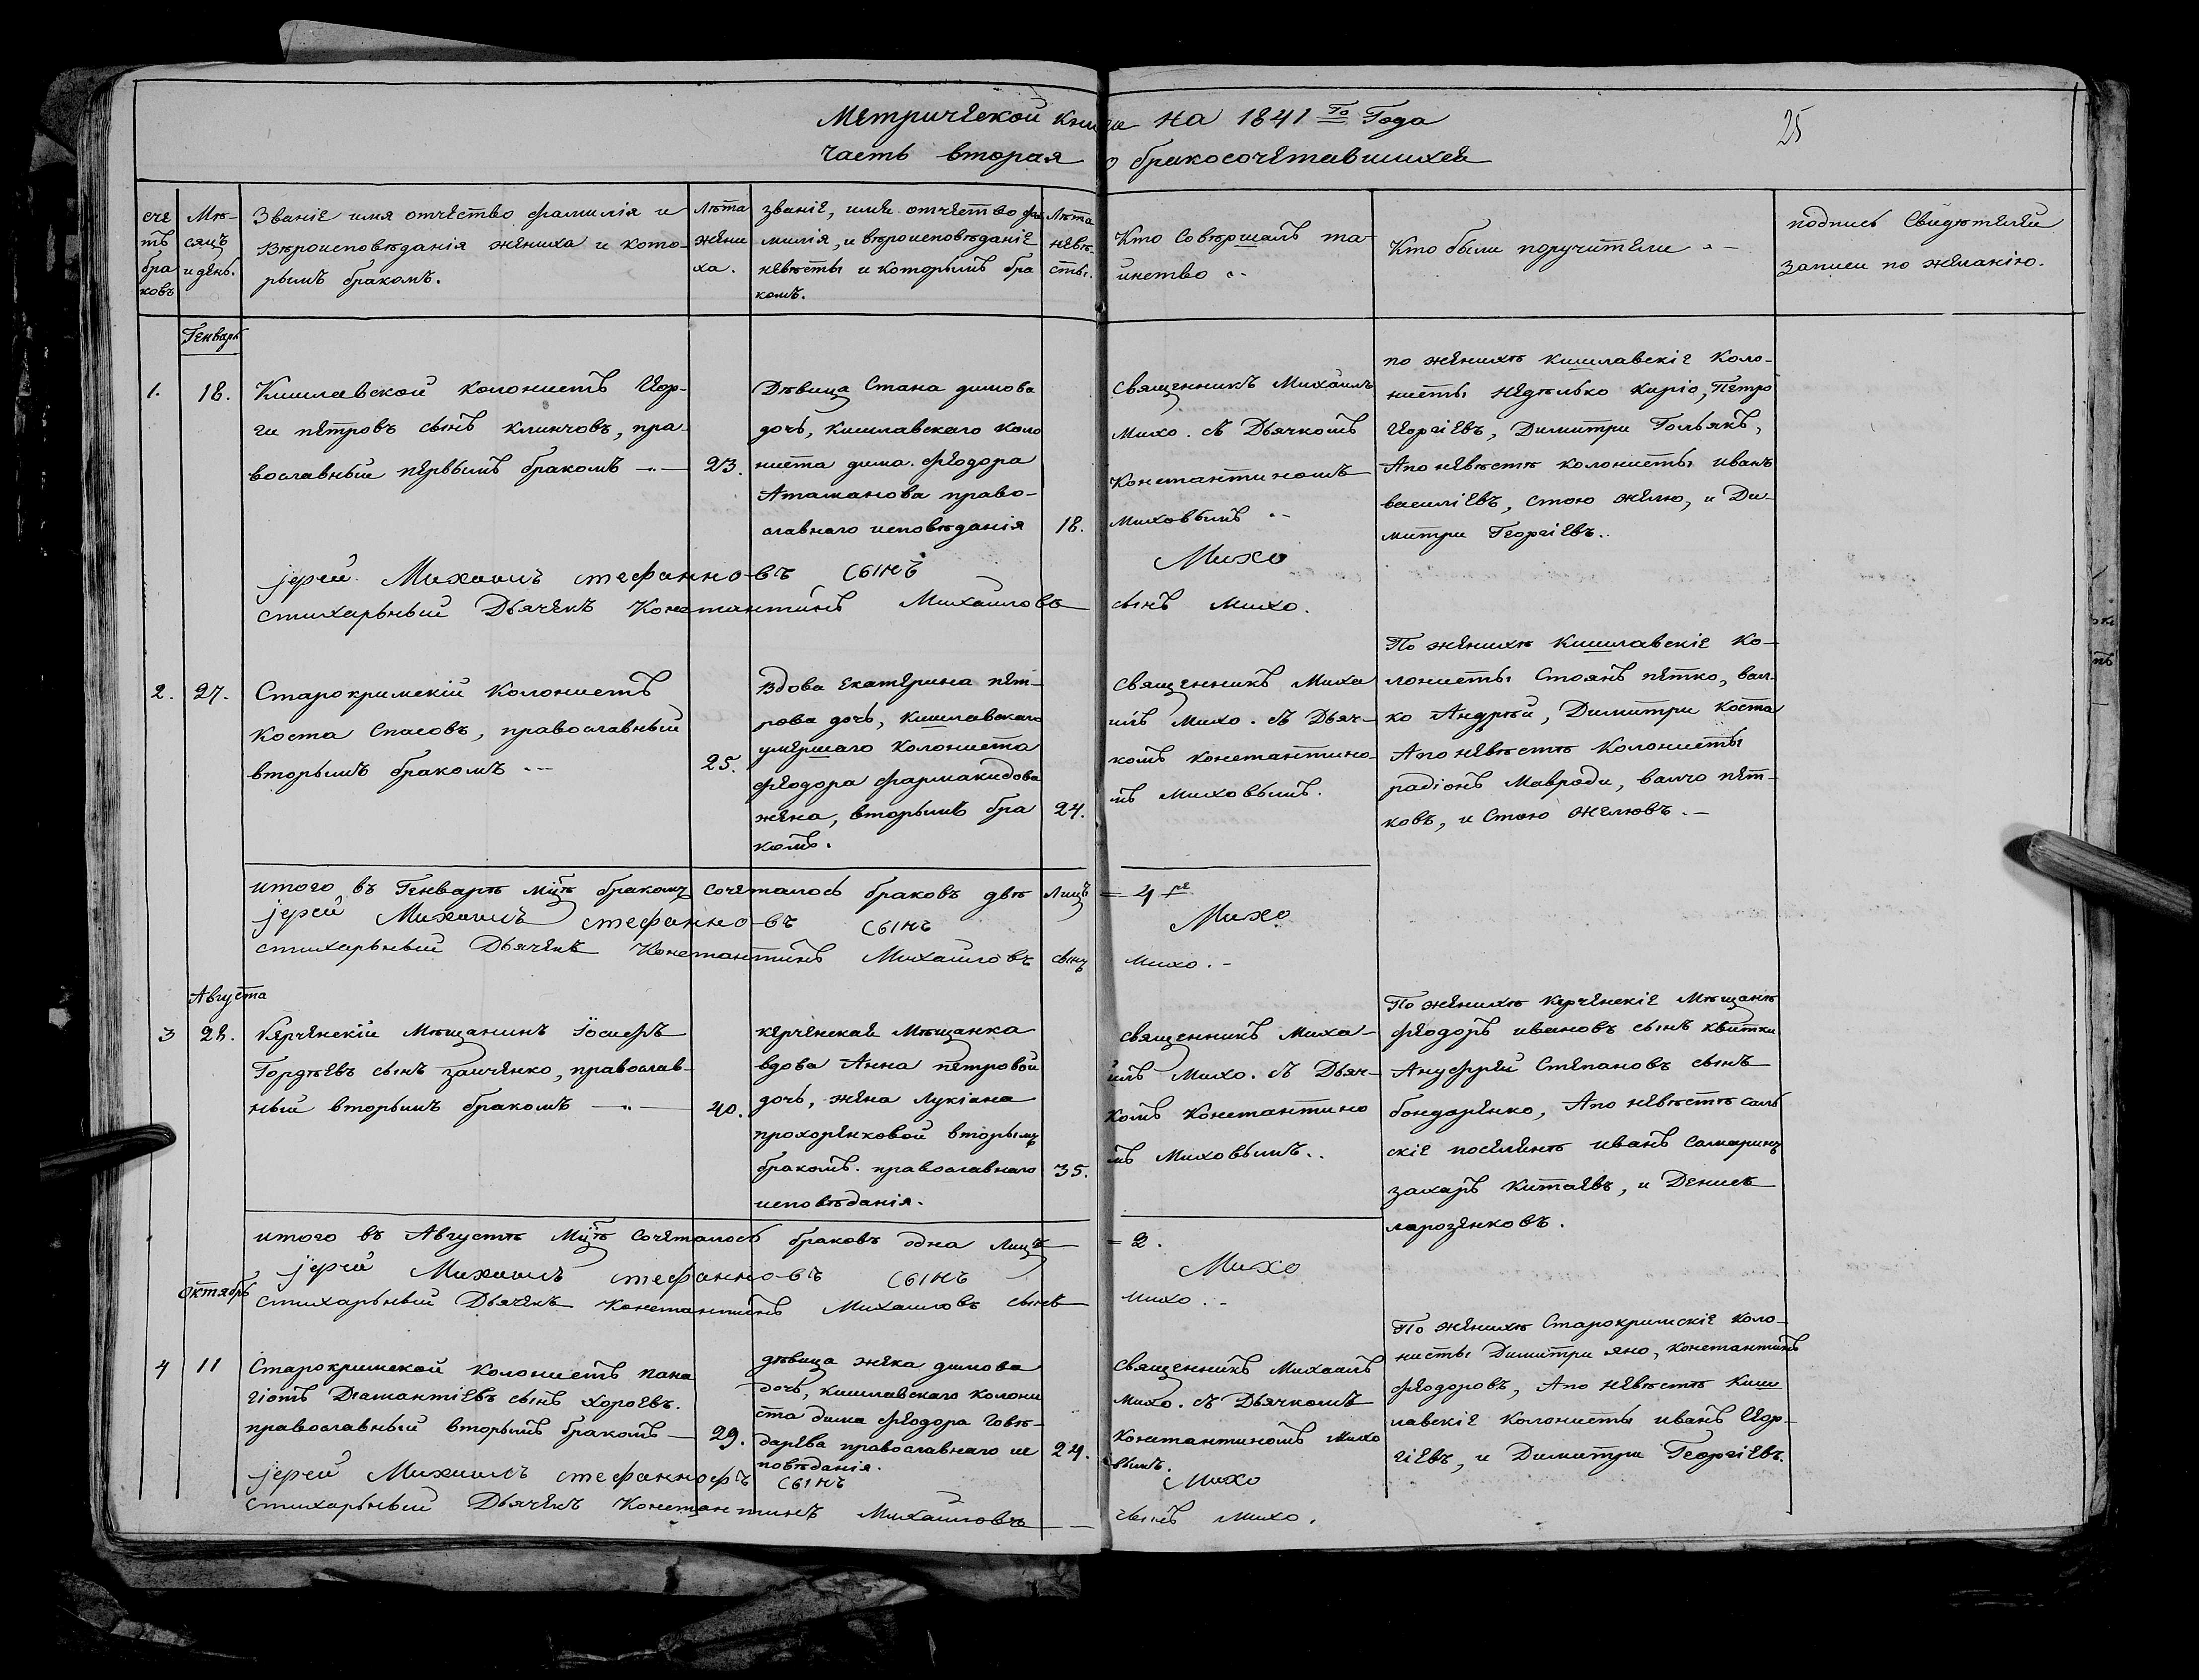 Метрической книги на 1841 го Года
25
часть вторая о бракосочетавшихся
сче
тъ
бра
ковъ
Мѣ-
сяцъ
и день.
Званіе имя отчество фамилія и
вѣроисповѣданія жениха и кото-
рымъ бракомъ.
Лѣта
жени
ха.
званіе, имя отчество фа
милія, и вѣроисповѣданіе
невѣсты и которымъ бра
комъ.
Лѣта
невѣ-
сты.
Кто Совершалъ та-
инство
Кто были поручители
подпись Свидѣтелей
записи по желанію.
Генварь
1.
18.
Кишлавской колонистъ Геор-
ги петровъ сынъ клинчовъ, пра-
вославный первымъ бракомъ
23.
Дѣвица Стана димова
дочь, кишлавскаго коло
ниста дима. Феодора
Атаманова право-
славнаго исповѣданія
18.
священникъ Михаилъ
Михо. съ Дьячкомъ
Константиномъ
Миховымъ
по женихѣ кишлавскіе коло-
нисты недѣлько киріо, Петро
Георгіевъ, Димитри Гольякъ,
А по невѣстѣ колонисты иванъ
василіевъ, стою желю, и Ди-
митри Георгіевъ..
јерей Михаилъ стефанновъ сынъ Михо
стихарьный Дьячекъ Константинъ Михаиловъ сынъ Михо.
2.
27.
Старокримскій колонистъ
Коста Спасовъ, православный
вторымъ бракомъ
25.
Вдова Екатерина пет-
рова дочь, кишлавскаго
умершаго колониста
Феодора фармакидова
жена, вторымъ бра
комъ.
24.
священникъ Миха
илъ Михо. съ Дьяч-
комъ константино-
мъ Миховымъ.
По женихѣ кишлавскіе ко-
лонисты Стоянъ петко, вал-
ко Андрѣй, Димитри Коста
А по невѣстѣ колонисты
радіонъ Мавроди, валчо пет-
ковъ, и Стою желювъ.
итого въ Генварѣ мцѣ бракомъ сочеталось браковъ двѣ Лицъ = 4 ре
јерей Михаилъ стефанновъ сынъ Михо
стихарьный Дьячекъ Константинъ Михаиловъ сынъ Михо.
Августа
3
28.
Керченскій Мѣщанинъ Іосифъ
Гордѣевъ сынъ заиченко, православ-
ный вторымъ бракомъ
40.
керченская Мѣщанка
вдова Анна петровой
дочь, жена Лукіана
прохоренковой вторымъ
бракомъ. православнаго
исповѣданія.
35.
священникъ Миха-
илъ Михо. съ Дьяч-
комъ Константино
мъ Миховымъ..
По женихѣ керченскіе Мѣщанѣ
Феодоръ ивановъ сынъ квитки
Ануфрей Степановъ сынъ
бондаренко, А по невѣстѣ саль
скіе поселянѣ иванъ Самаринъ
захаръ Китаевъ, и Денисъ
ларозенковъ.
итого въ Августѣ мцѣ сочеталось браковъ одна Лицъ = 2.
јерей Михаилъ стефанновъ сынъ Михо
стихарьный Дьячекъ Константинъ Михаиловъ сынъ Михо.
Октябрь
4
11
Старокримской колонистъ пана
гіотъ Діамантіевъ сынъ хороевъ.
православный вторымъ бракомъ
29.
дѣвица жека димова
дочь, кишлавскаго колони
ста дима Феодора Говѣ-
дарева православнаго ис
повѣданія.
24.
священникъ Михаилъ
Михо. съ Дьячкомъ
Константиномъ Михо
вымъ.
По женихѣ Старокримскіе коло-
нисты Димитри яно, константинъ
Феодоровъ, А по невѣстѣ Киш
лавскіе колонисты иванъ Геор-
гіевъ, и Димитри Георгіевъ.
јерей Михаилъ стефаннофъ сынъ Михо
стихарьный Дьячекъ Константинъ Михаиловъ сынъ Михо.